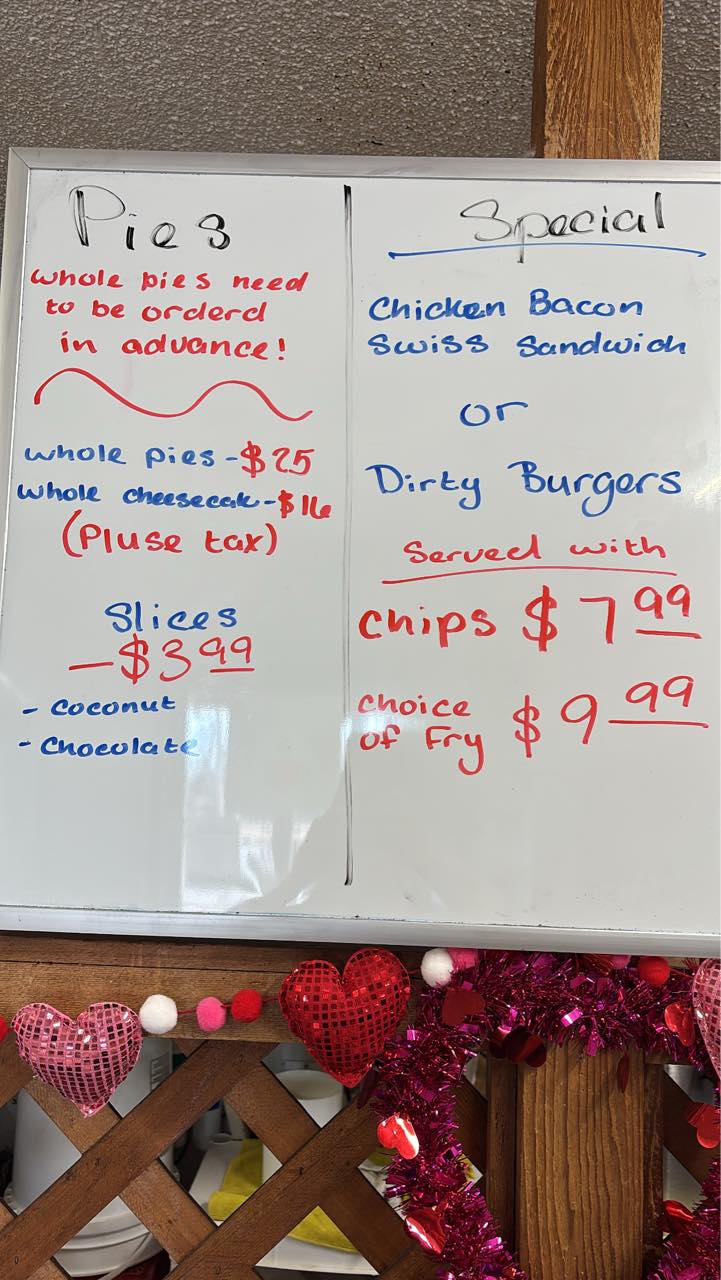 Pies
whole pies need
to be orderd
in advance!
whole pies - $25
whole cheesecak - $16
(Pluse tax)
Slices
- $3 99
- Coconut
- Chocolate
Special
Chicken Bacon
Swiss Sandwich
or
Dirty Burgers
Served with
chips $7 99
choice
of Fry $9 99